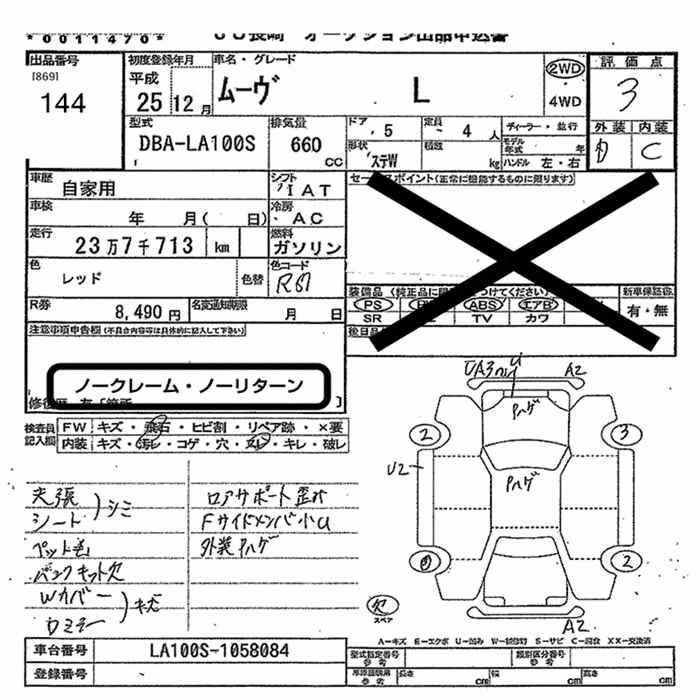 *0011470*
ＪＵ長崎 オークション出品申込書
出品番号
[869]
144
初度登録年月
平成
25 12月
車名・グレード
ムーヴ L
2WD
・
4WD
評価点
3
外装 内装
D C
型式
DBA-LA100S
排気量
660
CC
ドア
5
定員
4 人
形状
ステW
積載
kg
ディーラー・並行
モデル年式 年
ハンドル 左・右
車歴
自家用
シフト
IAT
車検
年 月( 日)
冷房
AC
走行
23万7千713 km
燃料
ガソリン
色
レッド
色替
色コード
R67
R券
8,490円
名変通知期限
月 日
セールスポイント(正常に機能するものに限ります)
装備品(純正品に限り つけてください)
PS ABS エアB
SR TV カワ
新車保証書
有・無
後日品
注意事項申告欄(不具合内容等は具体的に記入して下さい)
ノークレーム・ノーリターン
修復歴 有「箇所 〕
検査員記入欄
FW キズ・飛石・ヒビ割・リペア跡・×要
内装 キズ・汚レ・コゲ・穴・スレ・キレ・破レ
天張
シート
)シミ
ペット毛
パンクキット欠
Wカバー
Wミラー
)キズ
ロアサポート歪み
Fサイドメンバ小U
外装Pハゲ
UA3
A2
Pハゲ
2
3
U2
Pハゲ
2
欠
スペア
A2
A-キズ E-エクボ U-凹み W-補修跡 S-サビ C-腐食 XX-交換済
車台番号
LA100S-1058084
登録番号
型式指定番号
参考
類別区分番号
参考
参考
長さ cm 幅 cm 高さ cm